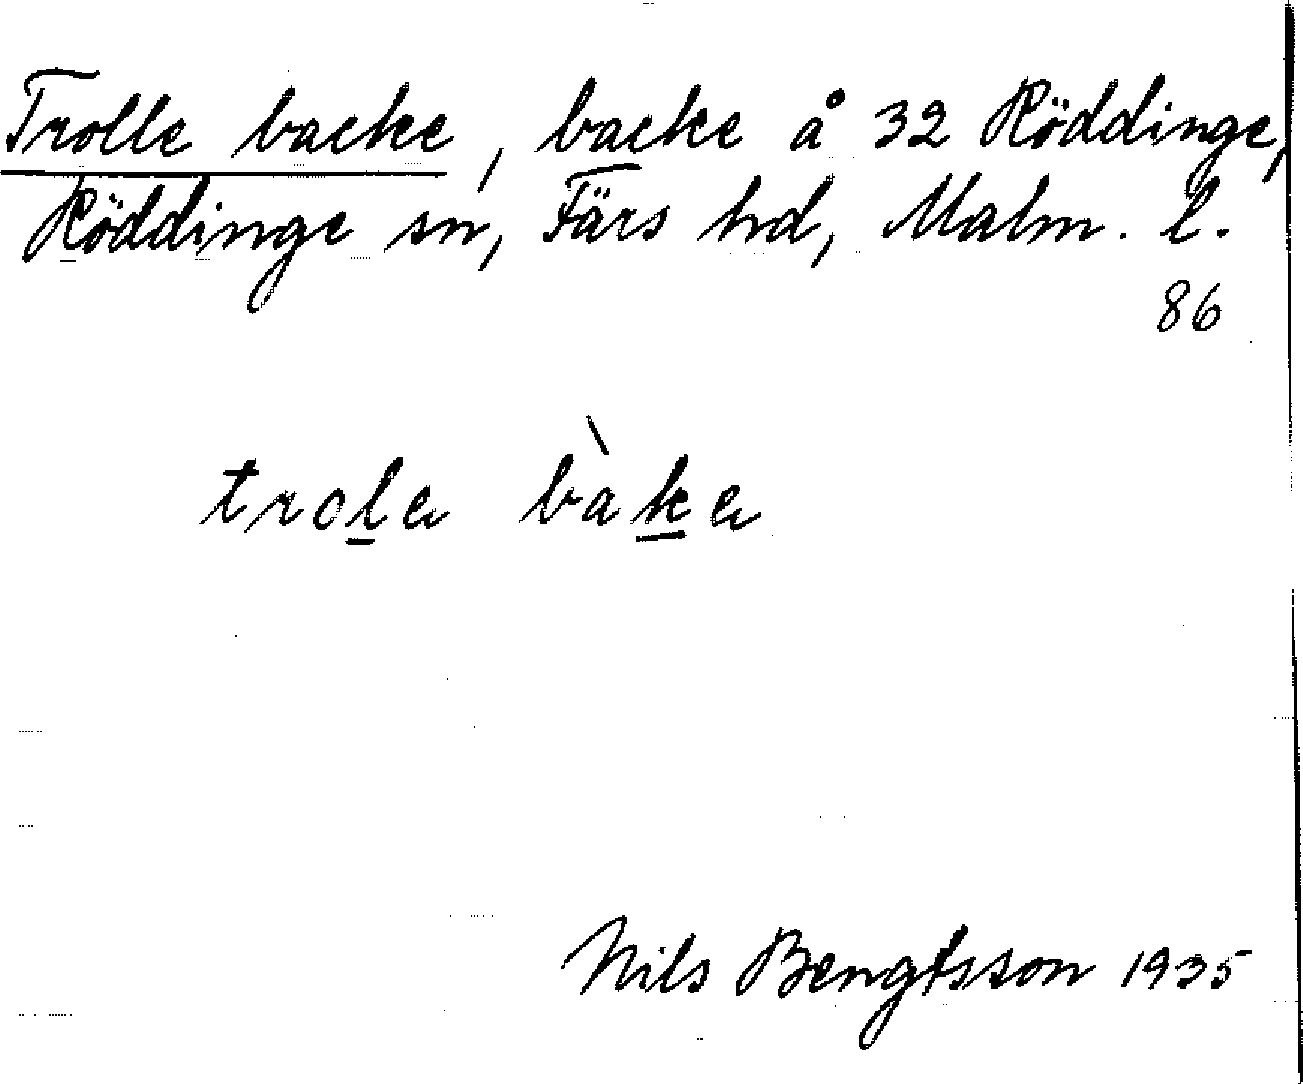 Trolle backe, backe å 32 Röddinge,
Röddinge sn, Färs hd, Malm. l.
86
trole bàke
Nils Bengtsson 1935